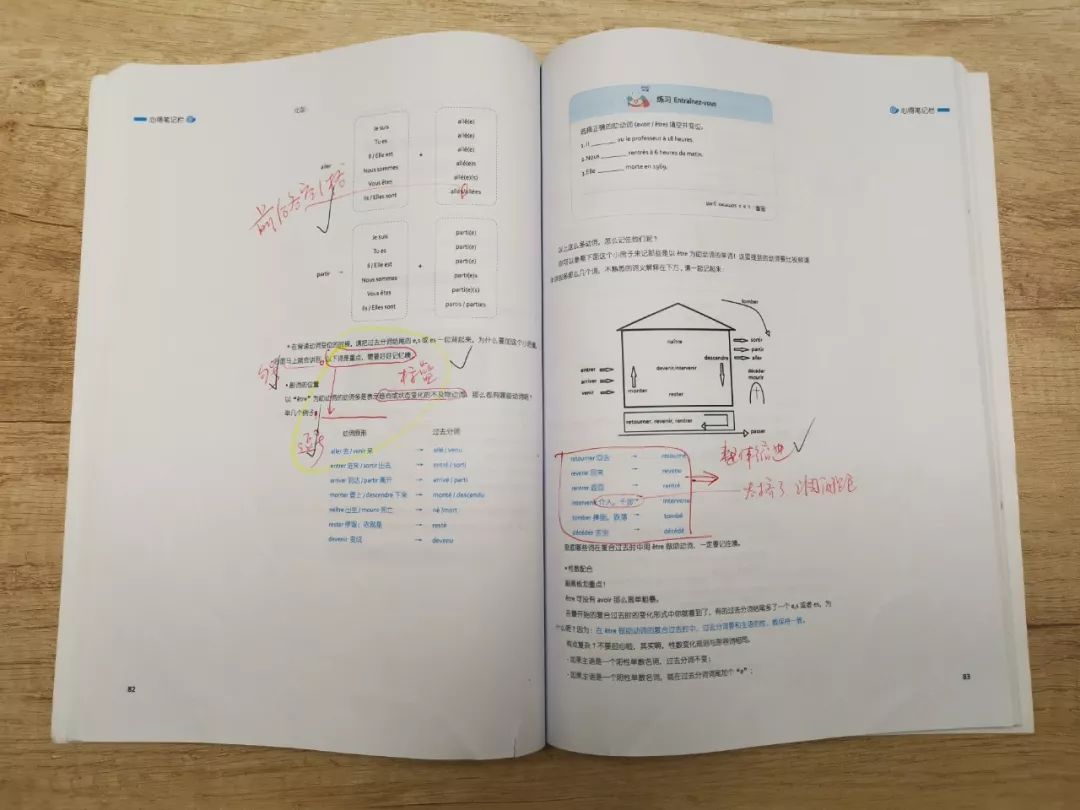 心得笔记栏
Je suis
Tu es
Il / Elle est
Nous sommes
Vous êtes
Ils / Elles sont
aller
+
allé(e)
allé(e)
allé(e)
allé(e)s
allé(e)(s)
allés/allées
Je suis
Tu es
Il / Elle est
Nous sommes
Vous êtes
Ils / Elles sont
partir
+
parti(e)
parti(e)
parti(e)
parti(e)s
parti(e)(s)
partis / parties
• 在背诵动词变位的时候，请把过去分词结尾的 e,s 或 es 一起背起来，为什么要加这个小尾巴
马上就会讲到。以下词是重点，需要好好记忆噢
标签
• 助词的位置
以“être”为助动词的动词多是表示趋向或状态变化的不及物动词，那么都有哪些动词呢？
举几个例子：
动词原形 过去分词
aller 去 / venir 来 → allé / venu
entrer 进来 / sortir 出去 → entré / sorti
arriver 到达 / partir 离开 → arrivé / parti
monter 登上 / descendre 下来 → monté / descendu
naître 出生 / mourir 死亡 → né /mort
rester 停留；依就是 → resté
devenir 变成 → devenu
82
心得笔记栏
练习 Entraînez-vous
选择正确的助动词 (avoir / être) 填空并变位。
1. Il ______ vu le professeur à 18 heures.
2. Nous ______ rentrés à 6 heures du matin.
3. Elle ______ morte en 1969.
以上这么多动词，怎么记住他们呢？
你可以拿着下面这个小房子来记那些是以 être 为助动词的单词！
不熟悉的词义解释在下方，请一起记起来：
tomber
naître
sortir
partir
aller
descendre
entrer
arriver
venir
devenir,intervenir
monter
rester
décéder
mourir
retourner, revenir, rentrer
passer
retourner 回去 → retourné
revenir 回来 → revenu
rentrer 返回 → rentré
intervenir 介入，干预 → intervenu
tomber 摔倒，跌落 → tombé
décéder 去世 → décédé
整体缩进
这些词在复合过去时中用 être 做助动词，一定要记住噢。
• 性数配合
敲黑板划重点！
être 可没有 avoir 那么简单粗暴。
在最开始的复合过去时的变化形式中你就看到了，有的过去分词结尾多了一个 e,s 或者 es，为
什么呢？因为：在 être 做助动词的复合过去时中，过去分词要和主语的性、数保持一致。
有点复杂？不要担心啦，其实啊，性数变化规则与形容词相同。
· 如果主语是一个阳性单数名词，过去分词不变；
· 如果主语是一个阴性单数名词，就在过去分词词尾加个“e”；
83